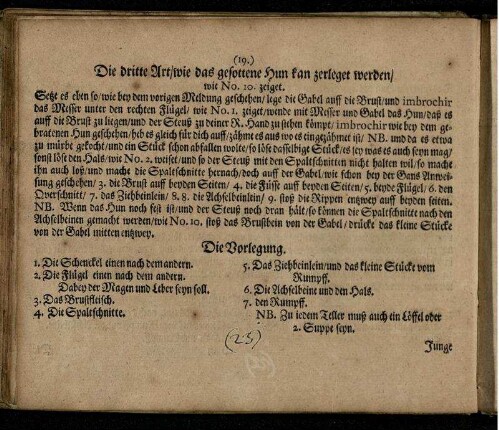 (19.)
Die dritte Art/wie das gesottene Hun kan zerleget werden/
wie No. 10. zeiget.
Setzt es eben so/wie bey dem vorigen Meldung geschehen/lege die Gabel auff die Brust/und imbrochir
das Messer unter den rechten Flügel/wie No. 1. zeiget/wende mit Messer und Gabel das Hun/daß es
auff die Brust zu liegen/und der Steuß zu deiner R. Hand zu stehen kömpt/imbrochir wie bey dem ge-
bratenen Hun geschehen/heb es gleich für dich auff/zähme es aus wo es eingezähmet ist/ NB. und da es etwa
zu mürbe gekocht/und ein Stück schon abfallen wolte/so löse dasselbige Stücke/es sey was es auch seyn mag/
sonst löst den Hals/wie No. 2. weiset/und so der Steuß mit den Spaltschnitten nicht halten wil/so macht
ihn auch loß/und macht die Spaltschnitte hernach/doch auff der Gabel/wie schon bey der Gans Anwei-
sung geschehen/ 3. die Brust auff beyden Seiten/ 4. die Füsse auff beyden Seiten/ 5. beyde Flügel/ 6. den
Qverschnitt/ 7. das Ziehbeinlein/ 8. 8. die Achselbeinlein/ 9. stoß die Rippen entzwey auff beyden seiten.
NB. Wenn das Hun noch fest ist/und der Steuß noch dran hält/so können die Spaltschnitte nach den
Achselbeinen gemacht werden/wie No. 10. stoß das Brustbein von der Gabel/drücke das kleine Stücke
von der Gabel mitten entzwey.
Die Vorlegung.
1. Die Schenckel einen nach dem andern.
2. Die Flügel einen nach dem andern.
Dabey der Magen und Leber seyn soll.
3. Das Brustfleisch.
4. Die Spaltschnitte.
5. Das Ziehbeinlein/und das kleine Stücke vom
Rumpff.
6. Die Achselbeine und den Hals.
7. den Rumpff.
NB. Zu iedem Teller muß auch ein Löffel oder
2. Suppe seyn.
(25)
Junge